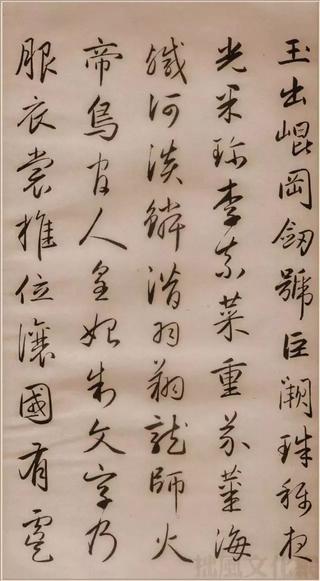 玉出崐岡劒號巨闕珠稱夜
光果珍李柰菜重芥薑海
鹹河淡鱗潛羽翔龍師火
帝鳥官人皇始制文字乃
服衣裳推位讓國有虞
拙風文化網